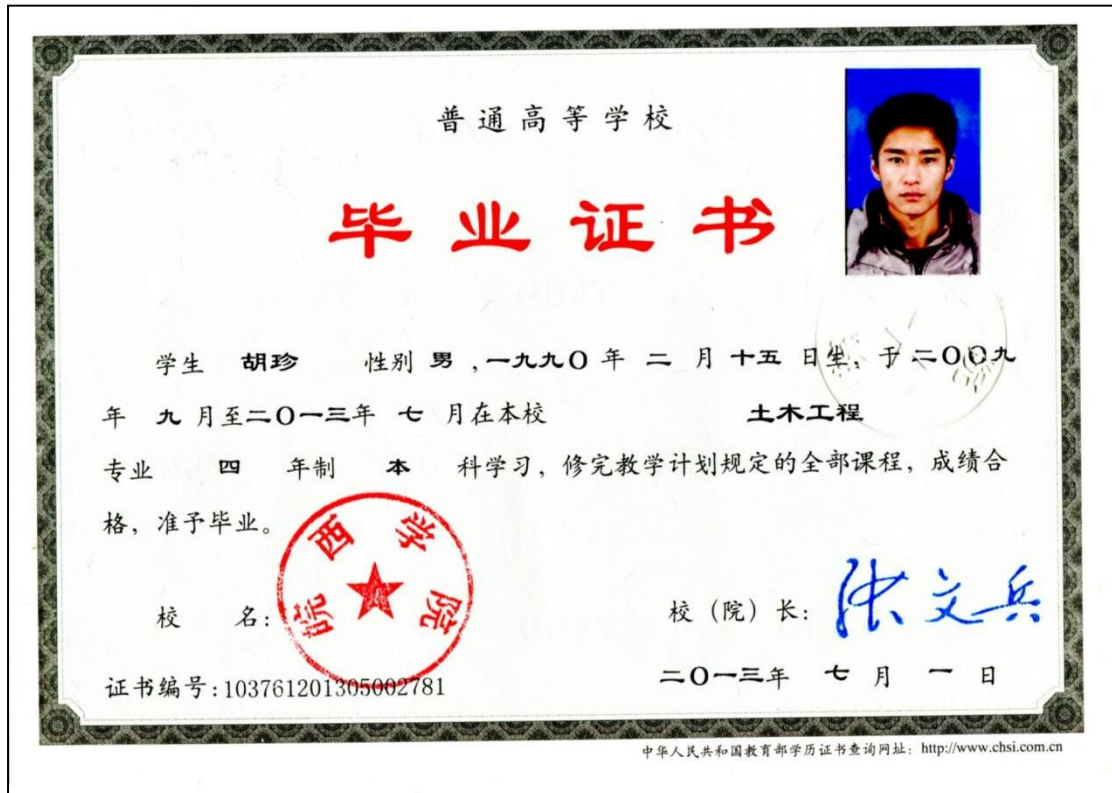 普通高等学校
毕业证书
学生 胡珍 性别 男 ,一九九〇 年 二 月 十五 日生, 于 二〇〇九
年 九 月至二〇一三年 七 月在本校 土木工程
专业 四 年制 本 科学习, 修完教学计划规定的全部课程, 成绩合
格, 准予毕业。
皖西学院
校 名:
校 (院) 长: 张文兵
证书编号:103761201305002781
二〇一三年 七 月 一 日
中华人民共和国教育部学历证书查询网址: http://www.chsi.com.cn